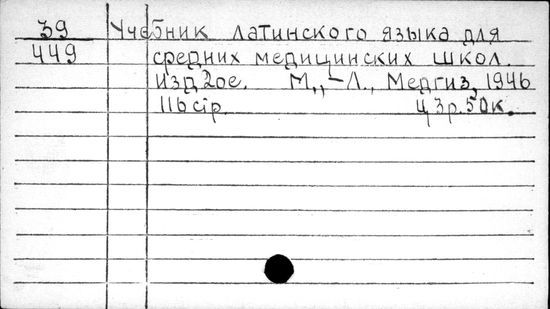 39 Учебник латинского языка для
449 средних медицинских школ.
Изд 2ое. М.,-Л., Медгиз, 1946
116 стр. ц 3р. 50к.